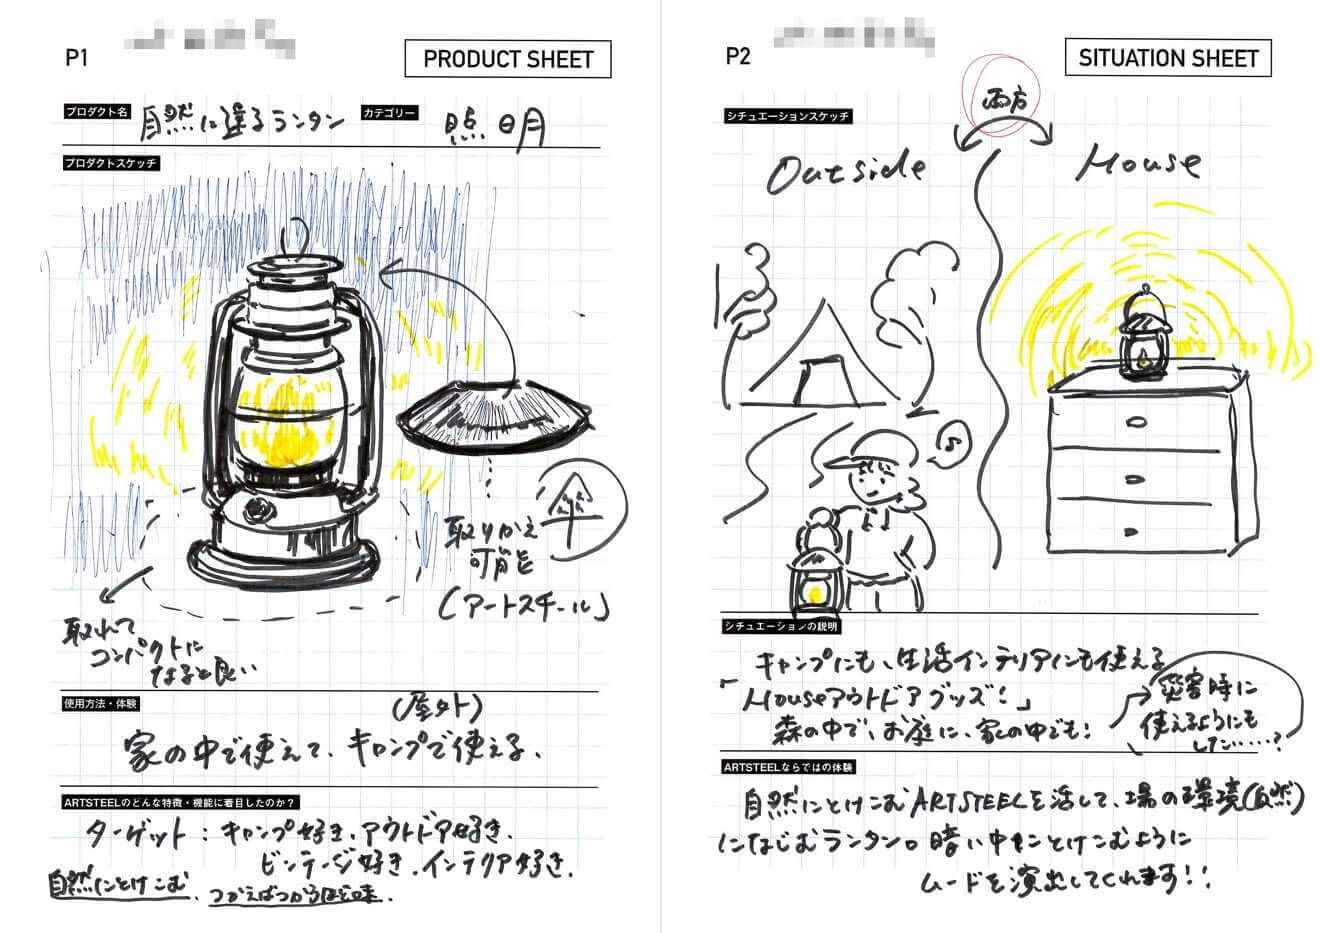 P1
PRODUCT SHEET
プロダクト名
自然に還るランタン
カテゴリー
照明
プロダクトスケッチ
傘
取りかえ
可能
(アートスチール)
取れて
コンパクトに
なると良い
使用方法・体験
(屋外)
家の中で使えて、キャンプで使える。
ARTSTEELのどんな特徴・機能に着目したのか？
ターゲット：キャンプ好き、アウトドア好き、
ビンテージ好き、インテリア好き、
自然にとけこむ、つかえばつかうほど味、
P2
SITUATION SHEET
シチュエーションスケッチ
両方
Outside
House
シチュエーションの説明
キャンプにも、生活インテリアにも使える
「Houseアウトドアグッズ！」
森の中で、お庭に、家の中でも！
災害時に
使えるようにも
したい……？
ARTSTEELならではの体験
自然にとけこむARTSTEELを活して、場の環境(自然)
になじむランタン。暗い中もとけこむように
ムードを演出してくれます！！